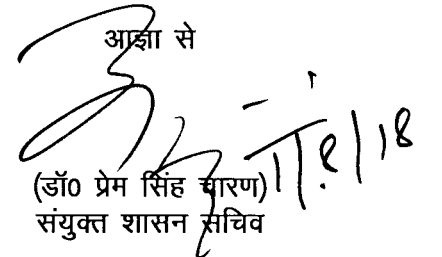 आज्ञा से
(डॉ0 प्रेम सिंह चारण)
संयुक्त शासन सचिव